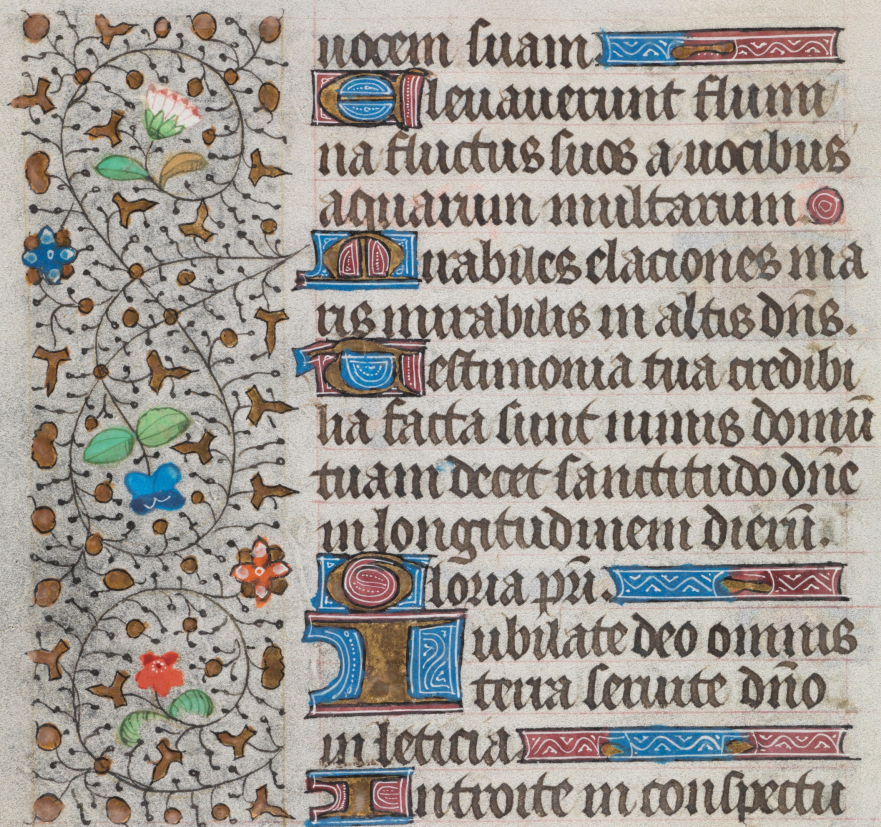 uocem suam.
Eleuauerunt flumi
na fluctus suos a uocibus
aquarum multarum.
Mirabiles elaciones ma
ris mirabilis in altis dn̄s.
Testimonia tua credibi
lia facta sunt nimis domū
tuam decet sanctitudo dn̄e
in longitudinem dierū.
Gloria pr̄i.
Iubilate deo omnis
terra seruite dn̄o
in leticia
Introite in conspectu